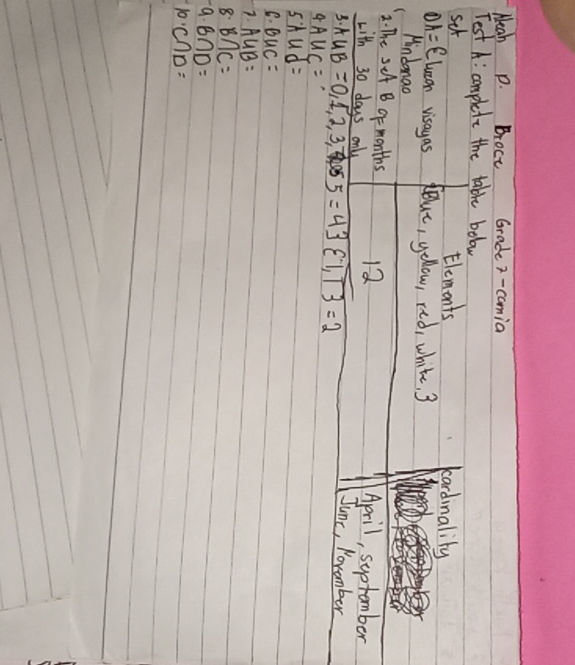 Neah P. Broce Grade 7-camia
Test A: complete the table below
Set Elements cardinality
1) A = {Luzon visayas Mindanao Blue, yellow, red, white, 3
2. The set B of months with 30 days only 12 April, september June, November
3. A U B = 0, 1, 2, 3, 5 = 43 {1, 1 3 = 2
4. A U C =
5. A U d =
6. B U C =
7. A U B =
8. B ∩ C =
9. B ∩ D =
10. C ∩ D =